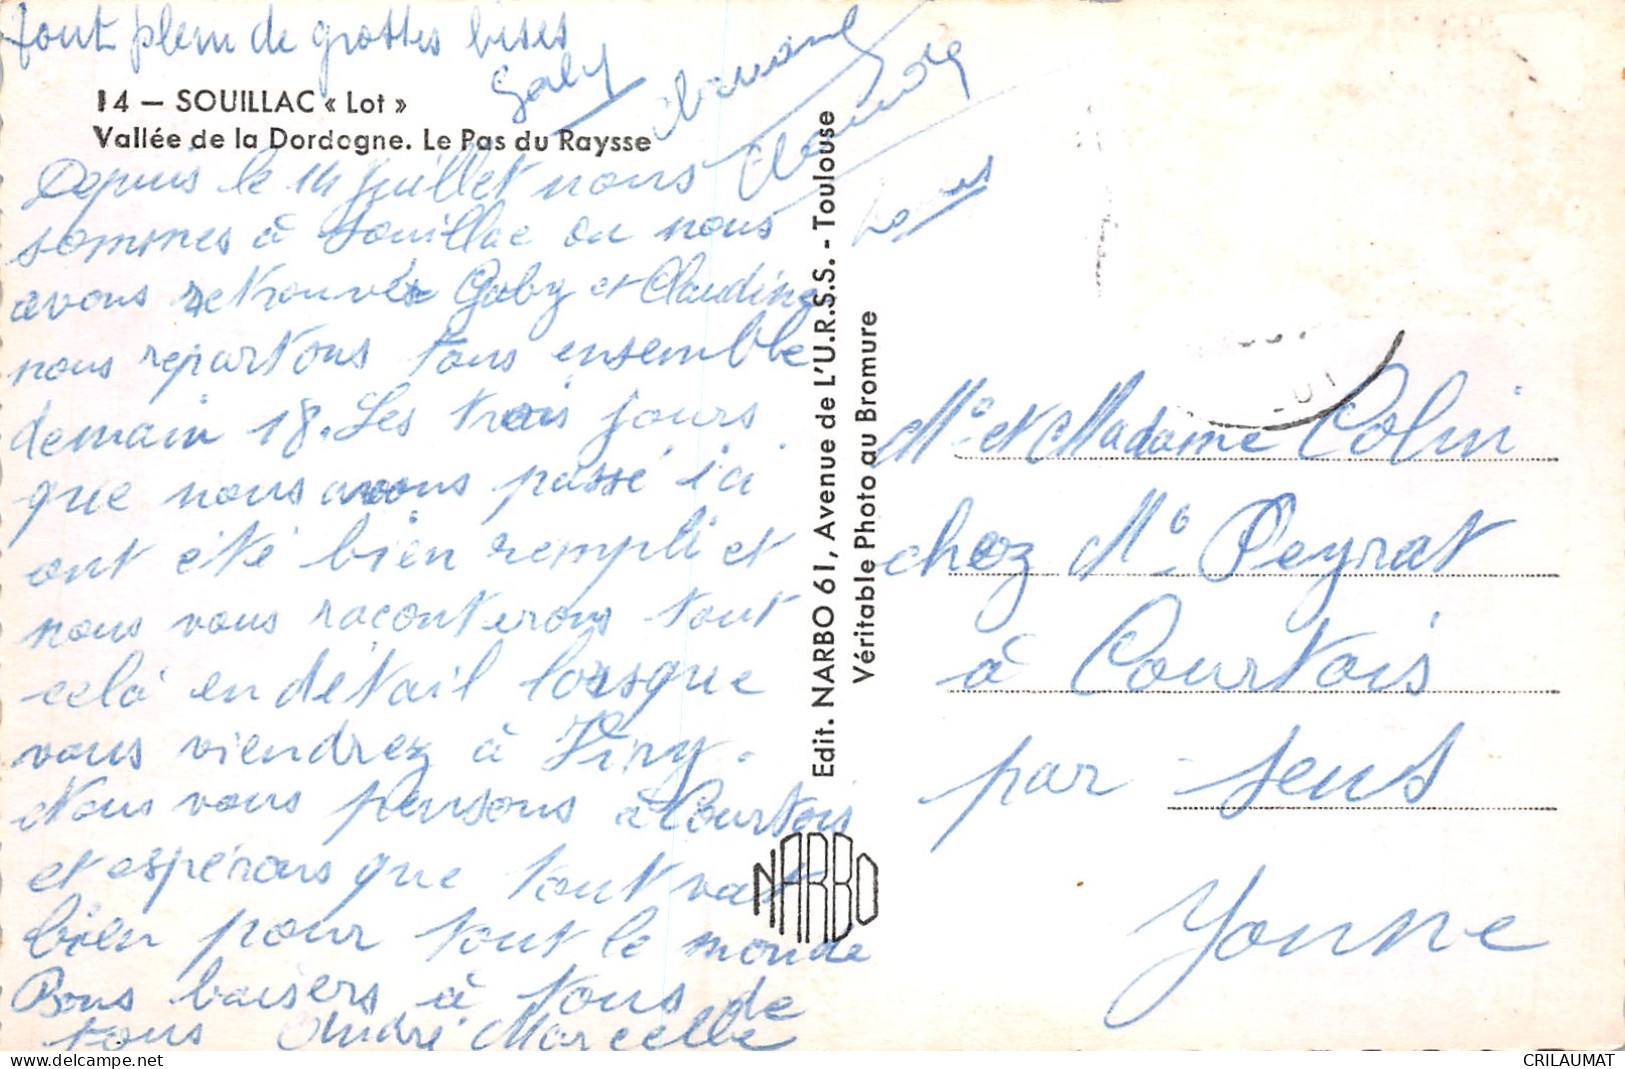 tout plein de grosses bises
Gaby
14 — SOUILLAC « Lot »
Vallée de la Dordogne. Le Pas du Raysse
Depuis le 14 Juillet nous
sommes à Souillac ou nous
avons retrouvés Gaby et Claudine
nous repartons tous ensemble
demain 18. Les trois jours
que nous avons passé ici
ont été bien rempli et
nous vous raconterons tout
celà en détail lorsque
vous viendrez à Viry.
Nous vous pensons à Courtois
et espérons que tout va
bien pour tout le monde
Bons baisers à tous de
tous André Marcelle
Edit. NARBO 61, Avenue de L'U.R.S.S. - Toulouse
Véritable Photo au Bromure
NARBO
Mr et Madame Colin
chez Mr Peyrat
à Courtois
par Sens
Yonne
CRILAUMAT